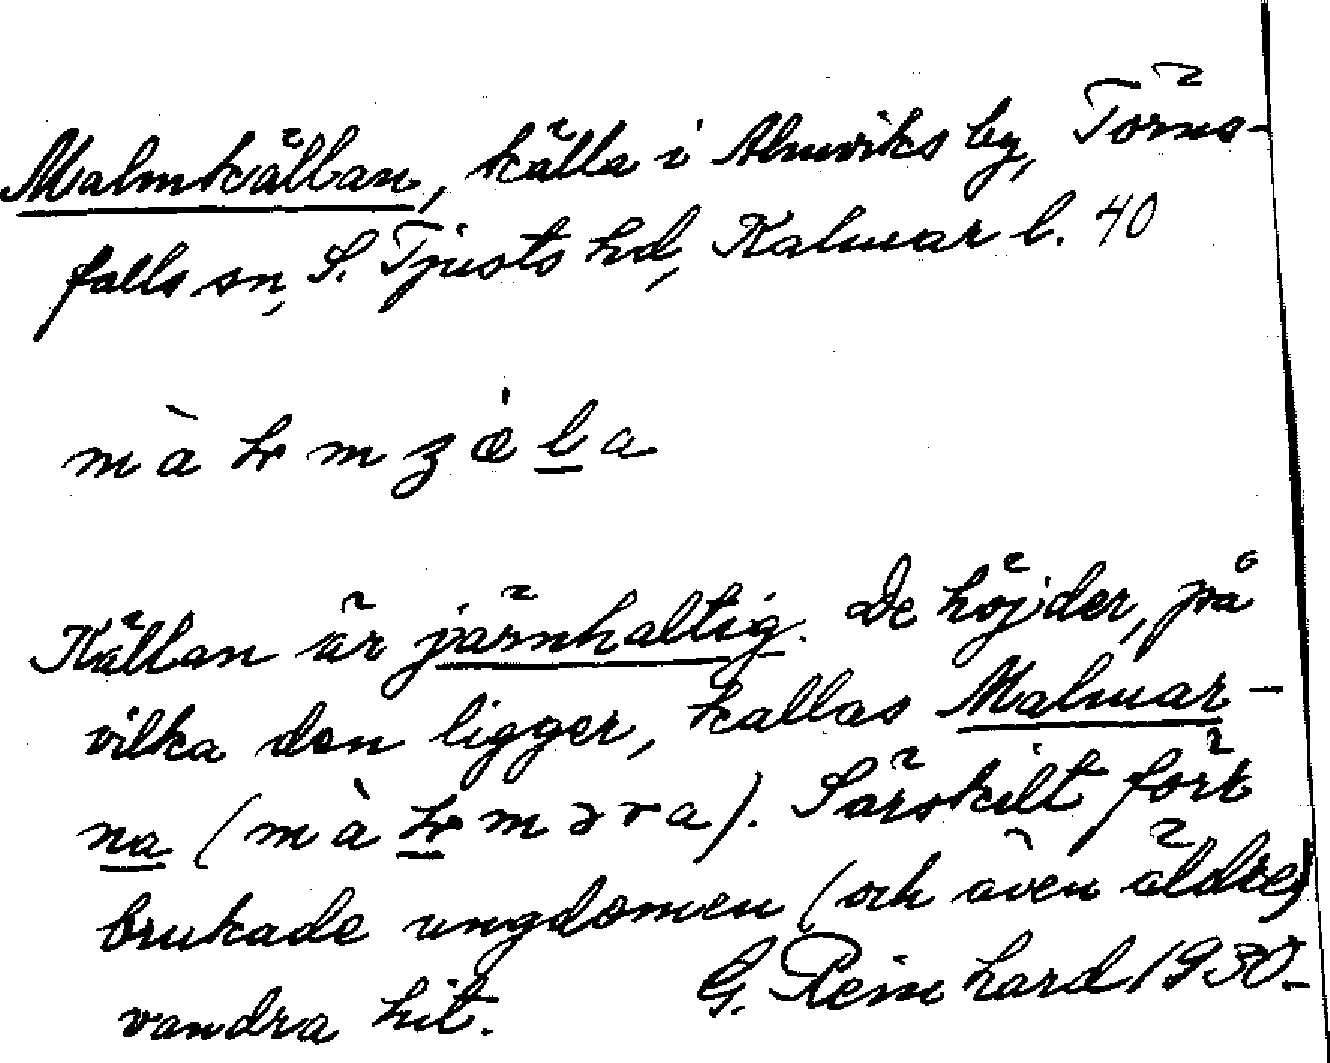 Malmkällan, källa i Almviks by, Törns-
falls sn, S. Tjusts hd, Kalmar l. 40
màƚmʒæ̀la
Källan är järnhaltig. De höjder, på
vilka den ligger, kallas Malmar-
na (màƚməra). Särskilt förr
brukade ungdomen (och även äldre)
vandra hit. G. Reinhard 1930.